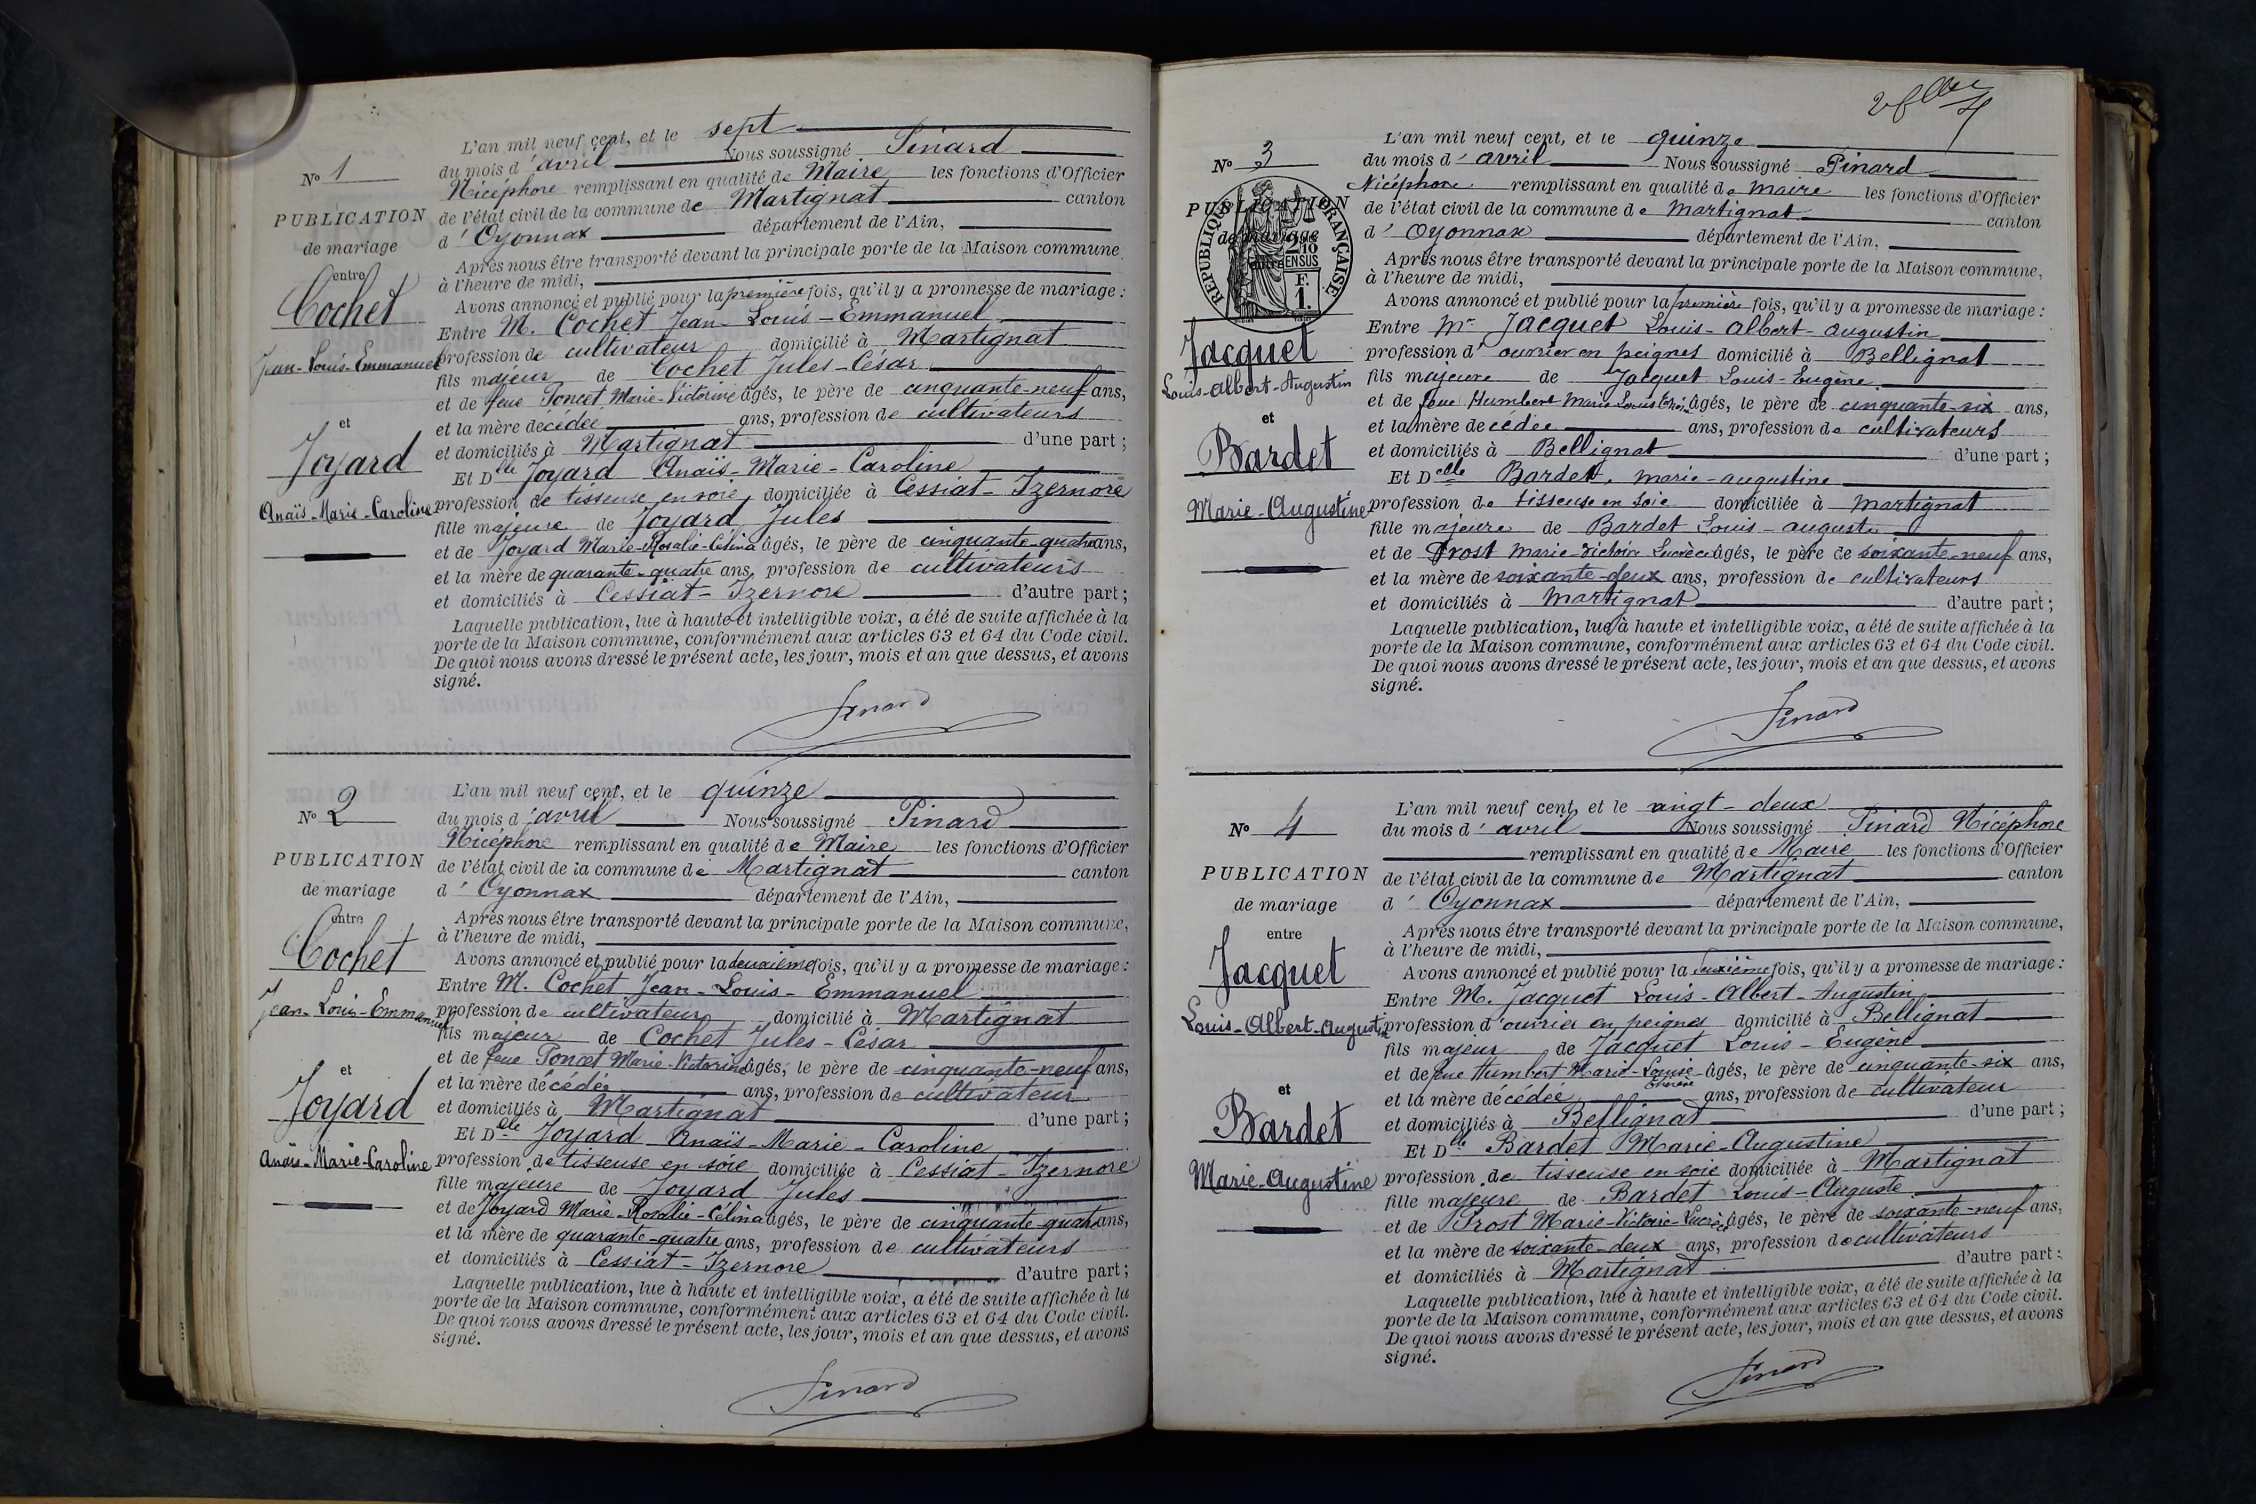 L'an mil neuf cent, et le sept
N° 1
du mois d'avril Nous soussigné Pinard
Nicéphore remplissant en qualité de Maire les fonctions d'Officier
PUBLICATION
de l'état civil de la commune de Martignat canton
de mariage
d'Oyonnax département de l'Ain,
Après nous être transporté devant la principale porte de la Maison commune,
entre
à l'heure de midi,
Cochet
Avons annoncé et publié pour la première fois, qu'il y a promesse de mariage :
Entre M. Cochet Jean-Louis-Emmanuel
Jean-Louis-Emmanuel
profession de cultivateur domicilié à Martignat
fils majeur de Cochet Jules-César
et de feue Poncet Marie-Victorine âgés, le père de cinquante-neuf ans,
et
et la mère décédée ans, profession de cultivateurs
Joyard
et domiciliés à Martignat d'une part ;
Et Dlle Joyard Anaïs-Marie-Caroline
Anaïs-Marie-Caroline
profession de tisseuse en soie, domiciliée à Cessiat-Izernore
fille majeure de Joyard Jules
et de Joyard Marie-Rosalie-Célina âgés, le père de cinquante-quatre ans,
et la mère de quarante-quatre ans, profession de cultivateurs
et domiciliés à Cessiat-Izernore d'autre part ;
Laquelle publication, lue à haute et intelligible voix, a été de suite affichée à la
porte de la Maison commune, conformément aux articles 63 et 64 du Code civil.
De quoi nous avons dressé le présent acte, les jour, mois et an que dessus, et avons
signé.
Pinard
L'an mil neuf cent, et le quinze
N° 2
du mois d'avril Nous soussigné Pinard
Nicéphore remplissant en qualité de Maire les fonctions d'Officier
PUBLICATION
de l'état civil de la commune de Martignat canton
de mariage
d'Oyonnax département de l'Ain,
entre
Après nous être transporté devant la principale porte de la Maison commune,
à l'heure de midi,
Cochet
Avons annoncé et publié pour la deuxième fois, qu'il y a promesse de mariage :
Entre M. Cochet Jean-Louis-Emmanuel
Jean-Louis-Emmanuel
profession de cultivateur domicilié à Martignat
fils majeur de Cochet Jules-César
et de feue Poncet Marie-Victorine âgés, le père de cinquante-neuf ans,
et
et la mère décédée ans, profession de cultivateur
Joyard
et domiciliés à Martignat d'une part ;
Et Dlle Joyard Anaïs-Marie-Caroline
Anaïs-Marie-Caroline
profession de tisseuse en soie domiciliée à Cessiat-Izernore
fille majeure de Joyard Jules
et de Joyard Marie-Rosalie-Célina âgés, le père de cinquante-quatre ans,
et la mère de quarante-quatre ans, profession de cultivateurs
et domiciliés à Cessiat-Izernore d'autre part ;
Laquelle publication, lue à haute et intelligible voix, a été de suite affichée à la
porte de la Maison commune, conformément aux articles 63 et 64 du Code civil.
De quoi nous avons dressé le présent acte, les jour, mois et an que dessus, et avons
signé.
Pinard
L'an mil neuf cent, et le quinze
N° 3
du mois d'avril Nous soussigné Pinard
Nicéphore remplissant en qualité de maire les fonctions d'Officier
PUBLICATION
de l'état civil de la commune de Martignat canton
de mariage
RÉPUBLIQUE FRANÇAISE
2/10 EN SUS
F. 1.
d'Oyonnax département de l'Ain,
entre
Après nous être transporté devant la principale porte de la Maison commune,
à l'heure de midi,
Avons annoncé et publié pour la première fois, qu'il y a promesse de mariage :
Entre Mr Jacquet Louis-albert-augustin
Jacquet
profession d'ouvrier en peignes domicilié à Bellignat
Louis-Albert-Augustin
fils majeure de Jacquet Louis-Eugène
et de feue Humbert Marie Louise âgés, le père de cinquante-six ans,
et
et la mère décédée ans, profession de cultivateurs
Bardet
et domiciliés à Bellignat d'une part ;
Et Delle Bardet, marie-augustine
Marie-Augustine
profession de tisseuse en soie domiciliée à Martignat
fille majeure de Bardet Louis-auguste
et de Prost marie-victoire Lucrèce âgés, le père de soixante-neuf ans,
et la mère de soixante-deux ans, profession de cultivateurs
et domiciliés à Martignat d'autre part ;
Laquelle publication, lue à haute et intelligible voix, a été de suite affichée à la
porte de la Maison commune, conformément aux articles 63 et 64 du Code civil.
De quoi nous avons dressé le présent acte, les jour, mois et an que dessus, et avons
signé.
Pinard
L'an mil neuf cent, et le vingt-deux
N° 4
du mois d'avril Nous soussigné Pinard Nicéphore
remplissant en qualité de Maire les fonctions d'Officier
PUBLICATION
de l'état civil de la commune de Martignat canton
de mariage
d'Oyonnax département de l'Ain,
entre
Après nous être transporté devant la principale porte de la Maison commune,
à l'heure de midi,
Jacquet
Avons annoncé et publié pour la deuxième fois, qu'il y a promesse de mariage :
Entre M. Jacquet Louis-Albert-Augustin
Louis-Albert-Augustin
profession d'ouvrier en peignes domicilié à Bellignat
fils majeur de Jacquet Louis-Eugène
et de feue Humbert Marie-Louise âgés, le père de cinquante-six ans,
et
et la mère décédée ans, profession de cultivateur
Bardet
et domiciliés à Bellignat d'une part ;
Et Dlle Bardet Marie-Augustine
Marie-Augustine
profession de tisseuse en soie domiciliée à Martignat
fille majeure de Bardet Louis-Auguste
et de Prost Marie-Victoire-Lucrèce âgés, le père de soixante-neuf ans,
et la mère de soixante-deux ans, profession de cultivateurs
et domiciliés à Martignat d'autre part ;
Laquelle publication, lue à haute et intelligible voix, a été de suite affichée à la
porte de la Maison commune, conformément aux articles 63 et 64 du Code civil.
De quoi nous avons dressé le présent acte, les jour, mois et an que dessus, et avons
signé.
Pinard